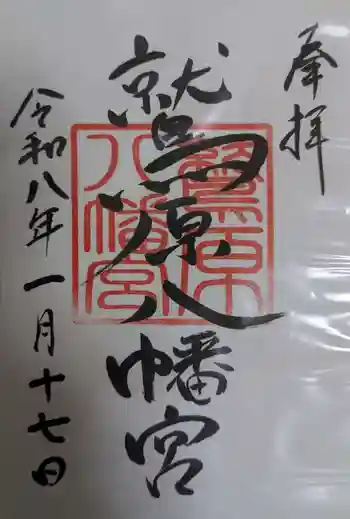 奉拝
鷲原八幡宮
鷲原
八幡宮
令和八年一月十七日